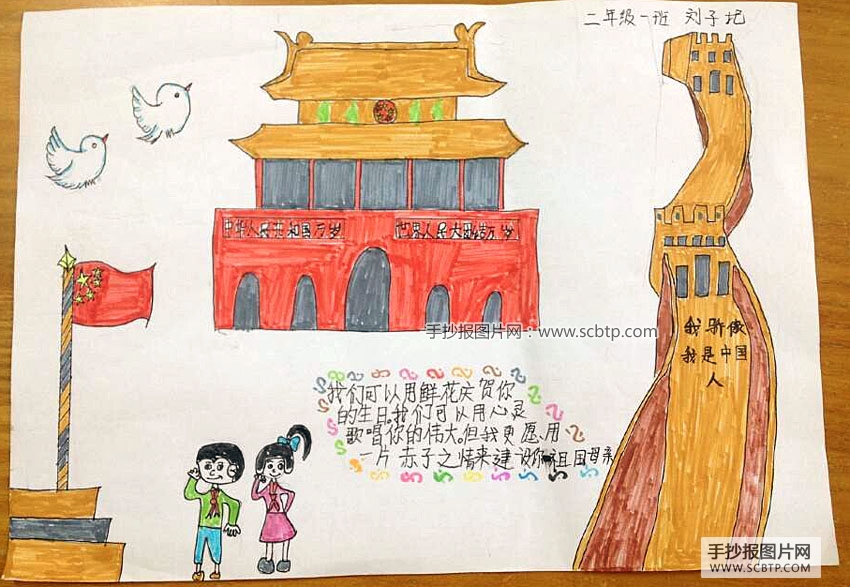 二年级一班 刘子圮
中华人民共和国万岁
世界人民大团结万岁
手抄报图片网：www.scbtp.com
我骄傲
我是中国
人
我们可以用鲜花庆贺你
的生日。我们可以用心灵
歌唱你的伟大。但我更愿、用
一片赤子之情来建设你祖国母亲
手抄报图片网
WWW.SCBTP.COM